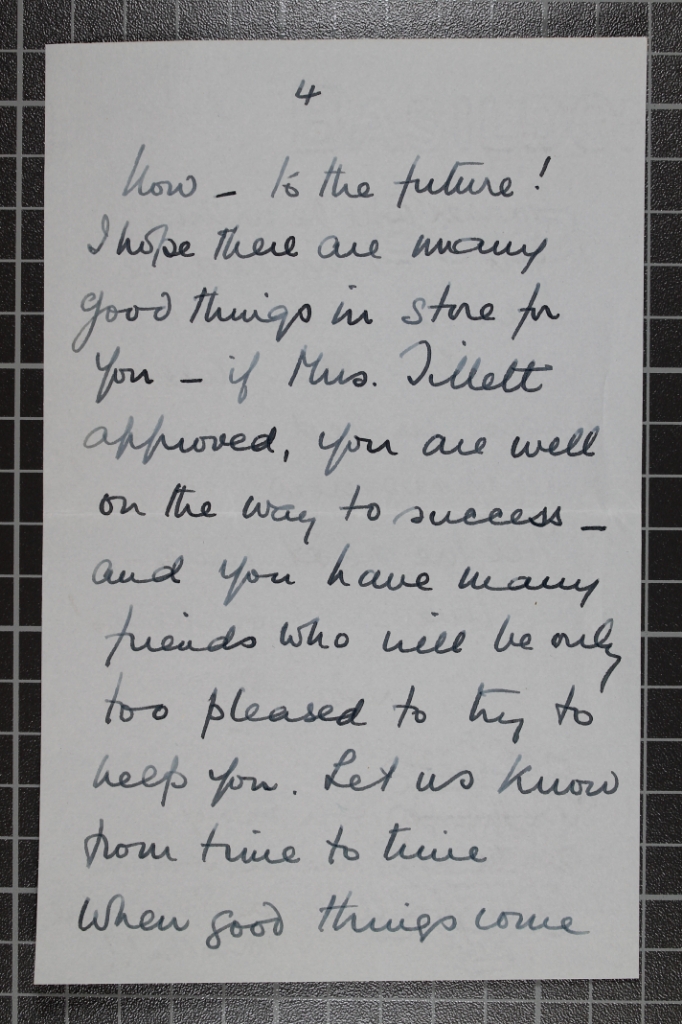 4
Now – to the future!
I hope there are many
good things in store for
you – if Mrs. Tillett
approved, you are well
on the way to success –
and you have many
friends who will be only
too pleased to try to
help you. Let us know
from time to time
when good things come